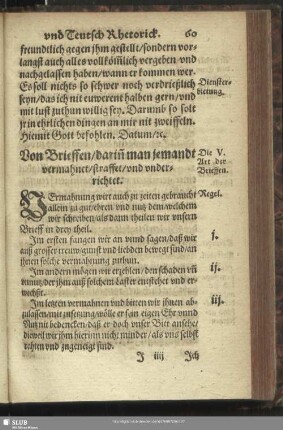 vnd Teutsch Rhetorick. 60
freundtlich gegen jhm gestelt/sondern vor-
langst auch alles vollkom̃lich vergeben vnd
nachgelassen haben/wann er kommen wer.
Es soll nichts so schwer noch verdrießlich
seyn/das ich nit euwerent halben gern/vnd
mit lust zuthun willig sey. Darumb so solt
jr in ehrlichen dingen an mir nit zweiffeln.
Hiemit Gott befohlen. Datum/ꝛc.
Dienster-
bietung.
Von Brieffen/dariñ man jemandt
vermahnet/straffet/vnd vnder-
richtet.
Die V.
Art der
Brieffen.
VErmahnung wirt auch zu zeiten gebraucht
allein zu
vnd mag dem/welchem
wir schreiben/als dann theilen wir vnsern
Brieff in drey theil.
Regel.
Im ersten fangen wir an vnnd sagen/daß wir
auß grosser treuw/gunst vnd liebden bewegt sind/an
jhnen solche vermahnung zuthun.
j.
Im andern mögen wir erzehlen/den schaden vñ
vnnutz/der jhm auß solchem laster entstehet vnd er-
wechßt.
ij.
Im letzten vermahnen vnd bitten wir jhnen ab-
zulassen/mit zusetzung/wölle er sein eigen Ehr vnnd
Nutz nit bedencken/daß er doch vnser Bitt ansehe/
dieweil wir jhm hierinn nicht minder/als vns selbst
rahten/vnd zugeneigt sind.
iij.
J iiij Ich
SLUB